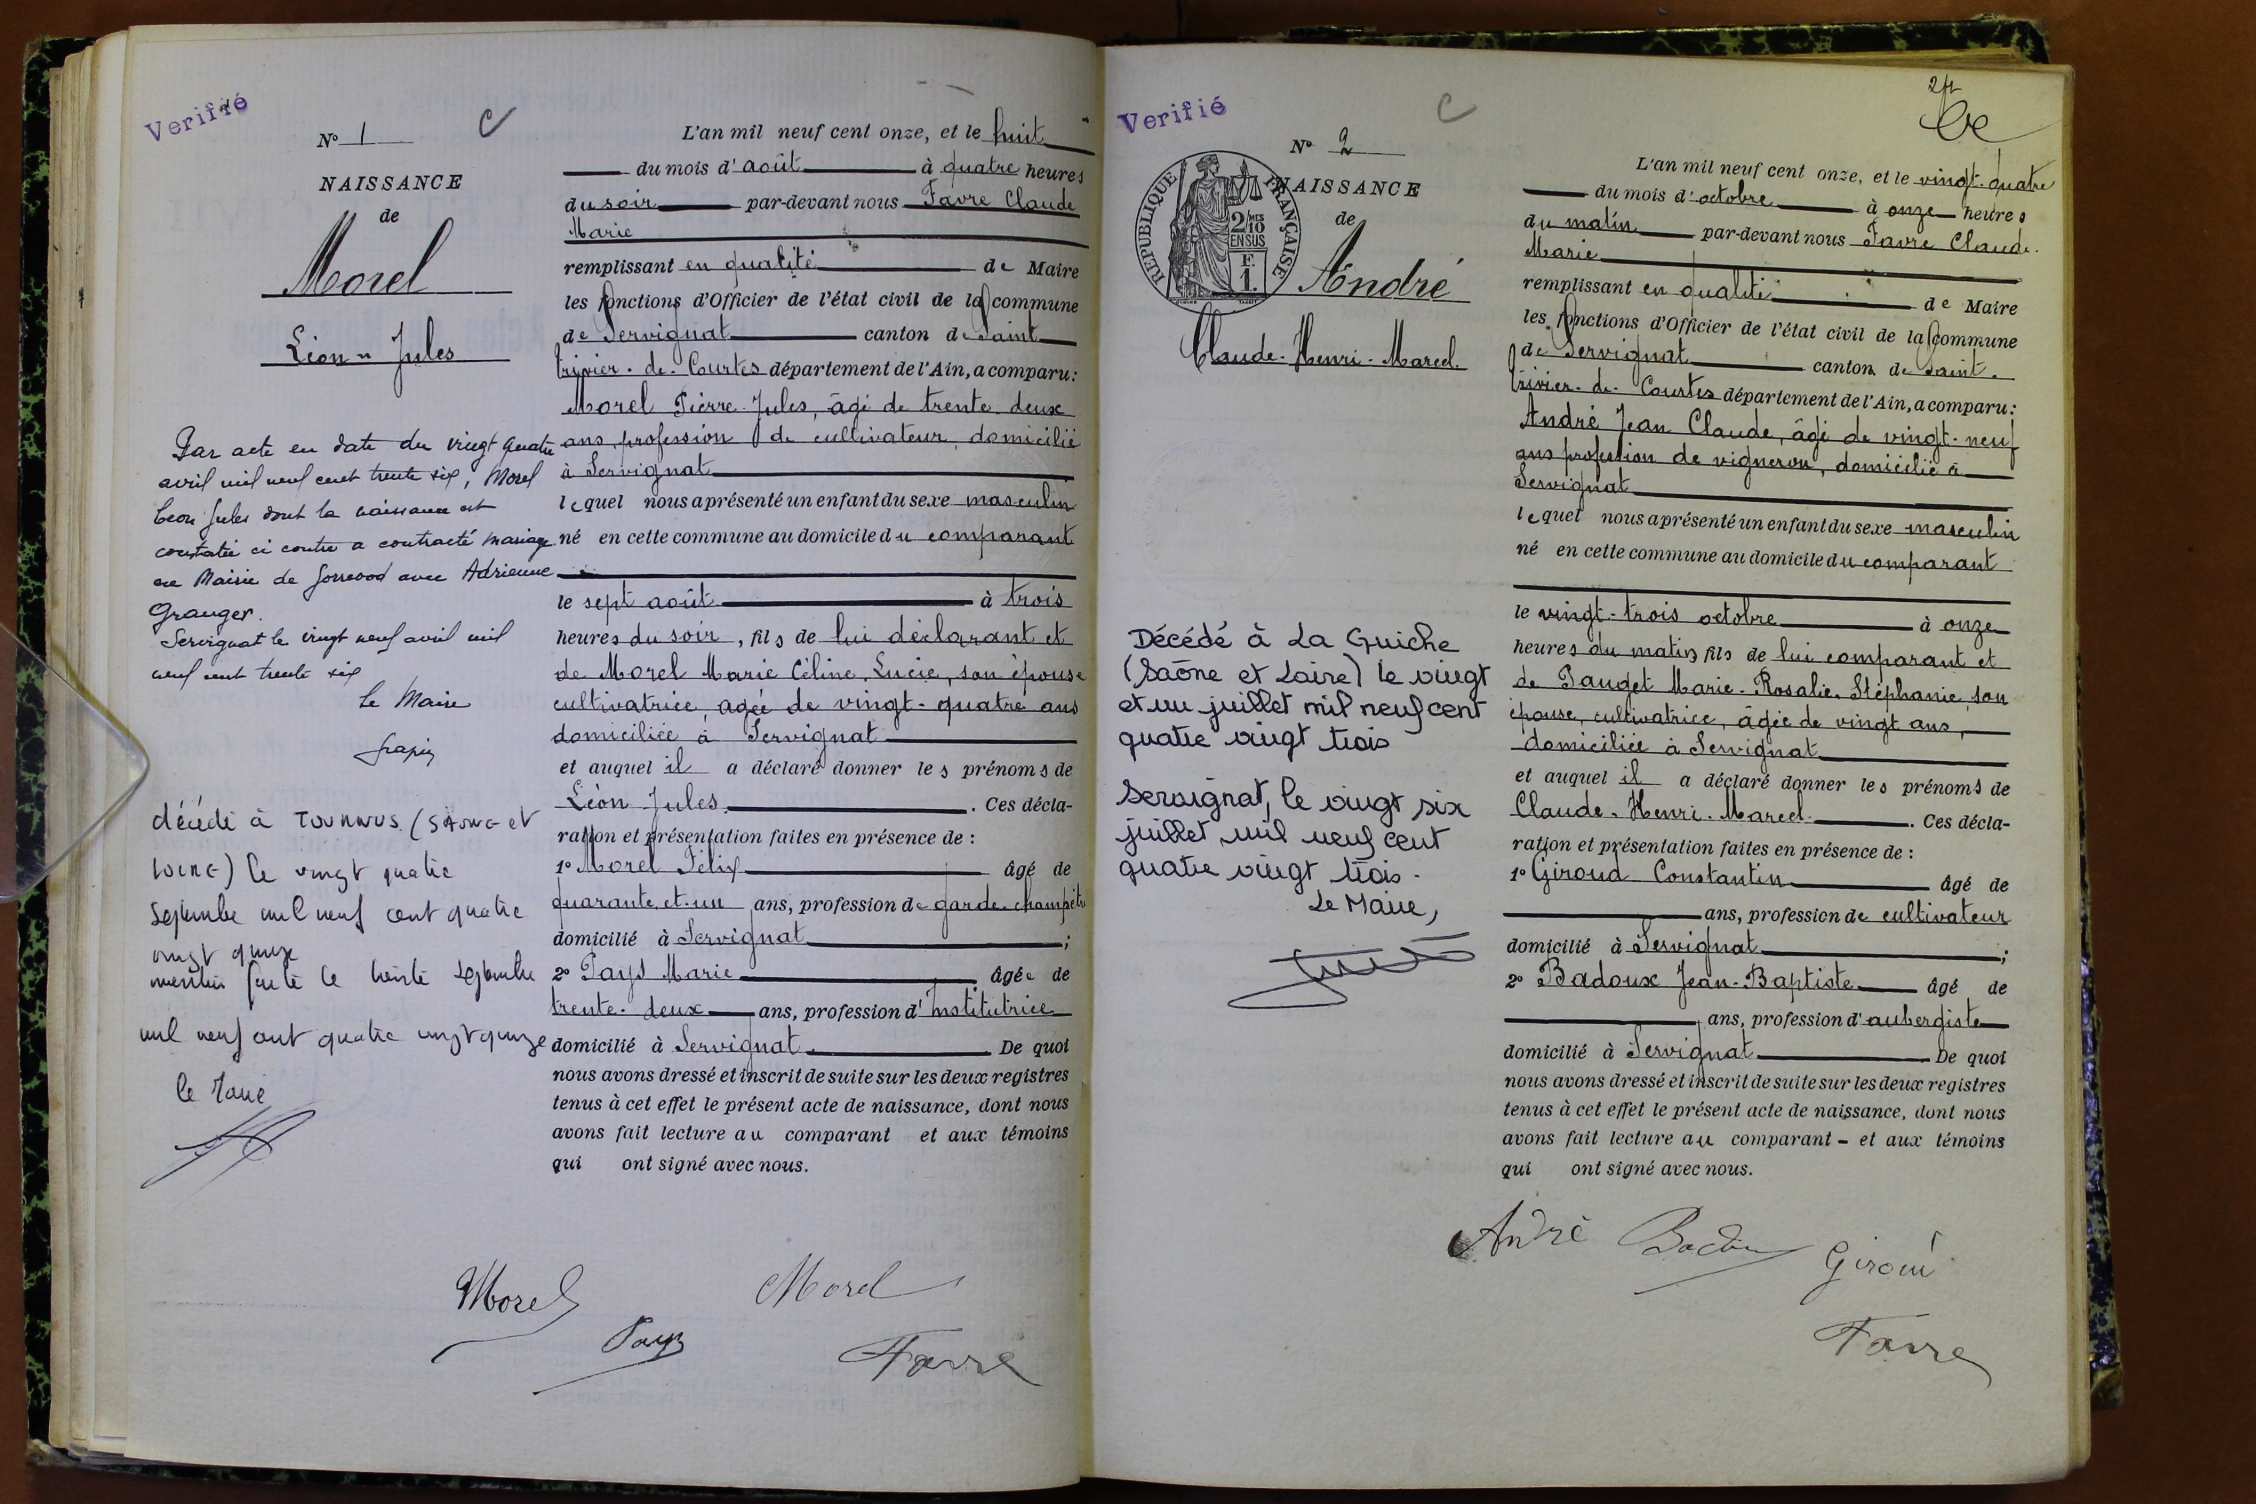 Verifié
N° 1
C
NAISSANCE
de
Morel
Léon Jules
Par acte en date du vingt quatre
avril mil neuf cent trente six, Morel
Léon Jules dont la naissance est
constatée ci contre a contracté mariage
en Mairie de avec Adrienne
Granger.
Servignat le vingt neuf avril mil
neuf cent trente six
Le Maire
décédé à TOURNUS (SAONE et
LOIRE) le vingt quatre
septembre mil neuf cent quatre
vingt quinze
mention faite le trente septembre
mil neuf cent quatre vingt quinze
le Maire
L'an mil neuf cent onze, et le huit
du mois d'août à quatre heures
du soir par-devant nous Favre Claude
Marie
remplissant en qualité de Maire
les fonctions d'Officier de l'état civil de la commune
de Servignat canton de Saint
trivier-de-Courtes département de l'Ain, a comparu:
Morel Pierre-Jules, âgé de trente-deux
ans, profession de cultivateur, domicilié
à Servignat
lequel nous a présenté un enfant du sexe masculin
né en cette commune au domicile du comparant
le sept août à trois
heures du soir, fils de lui déclarant et
de Morel Marie Céline Lucie, son épouse
cultivatrice, agée de vingt-quatre ans
domiciliée à Servignat
et auquel il a déclaré donner les prénoms de
Léon Jules. Ces décla-
ration et présentation faites en présence de :
1° Morel Félix âgé de
quarante-et-un ans, profession de garde-champêtre
domicilié à Servignat ;
2° Pays Marie âgée de
trente-deux ans, profession d'Institutrice
domicilié à Servignat. De quoi
nous avons dressé et inscrit de suite sur les deux registres
tenus à cet effet le présent acte de naissance, dont nous
avons fait lecture au comparant et aux témoins
qui ont signé avec nous.
Morel
Morel
Pays
Favre
Verifié
N° 2
C
REPUBLIQUE FRANÇAISE
2/10 MES
EN SUS
F.
1.
NAISSANCE
de
André
Claude-Henri-Marcel.
Décédé à La Guiche
(Saône et Loire) le vingt
et un juillet mil neuf cent
quatre vingt trois
Servignat, le vingt six
juillet mil neuf cent
quatre vingt trois.
Le Maire,
L'an mil neuf cent onze, et le vingt-quatre
du mois d'octobre à onze heures
du matin par-devant nous Favre Claude
Marie
remplissant en qualité de Maire
les fonctions d'Officier de l'état civil de la commune
de Servignat canton de Saint-
trivier-de-Courtes département de l'Ain, a comparu:
André Jean Claude, âgé de vingt-neuf
ans profession de vigneron, domicilié à
Servignat
lequel nous a présenté un enfant du sexe masculin
né en cette commune au domicile du comparant
le vingt-trois octobre à onze
heures du matin fils de lui comparant et
de Pauget Marie-Rosalie-Stéphanie, son
épouse, cultivatrice, âgée de vingt ans,
domiciliée à Servignat
et auquel il a déclaré donner les prénoms de
Claude-Henri-Marcel. Ces décla-
ration et présentation faites en présence de :
1° Giroud Constantin âgé de
ans, profession de cultivateur
domicilié à Servignat ;
2° Badoux Jean-Baptiste âgé de
ans, profession d'aubergiste
domicilié à Servignat De quoi
nous avons dressé et inscrit de suite sur les deux registres
tenus à cet effet le présent acte de naissance, dont nous
avons fait lecture au comparant - et aux témoins
qui ont signé avec nous.
André
Giroud
Favre